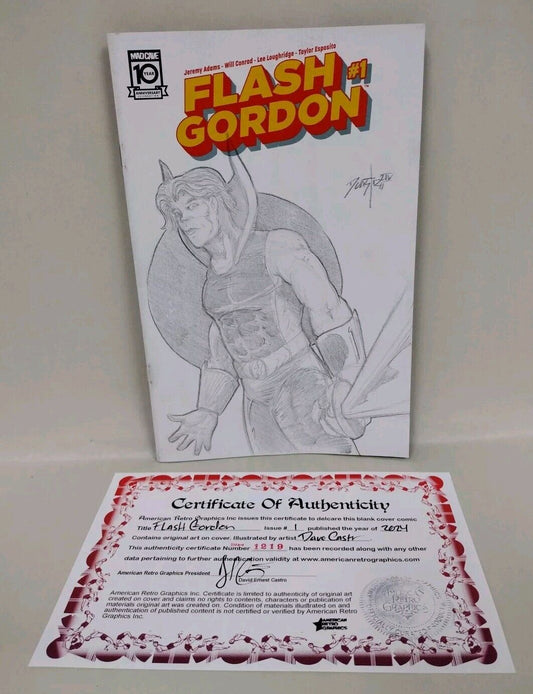 MAD CAVE
10
YEAR
ANNIVERSARY
Jeremy Adams - Will Conrad - Lee Loughridge - Taylor Esposito
FLASH #1
GORDON
Certificate Of Authenticity
American Retro Graphics Inc issues this certificate to delcare this blank cover comic
Title Flash Gordon Issue # 1 published the year of 2024
Contains original art on cover. Illustrated by artist Dave Castr
This authenticity certificate Number 1219 has been recorded along with any other
data pertaining to further authentication validity at www.americanretrographics.com
American Retro Graphics President
David Ernest Castro
American Retro Graphics Inc. Certificate is limited to authenticity of original art
created on cover and claims no rights to contents, characters or publication of
materials original art was created on. Condition of materials illustrated on and
authentication of published content is not certified or verified by American Retro
Graphics Inc.
AMERICAN
RETRO
GRAPHICS